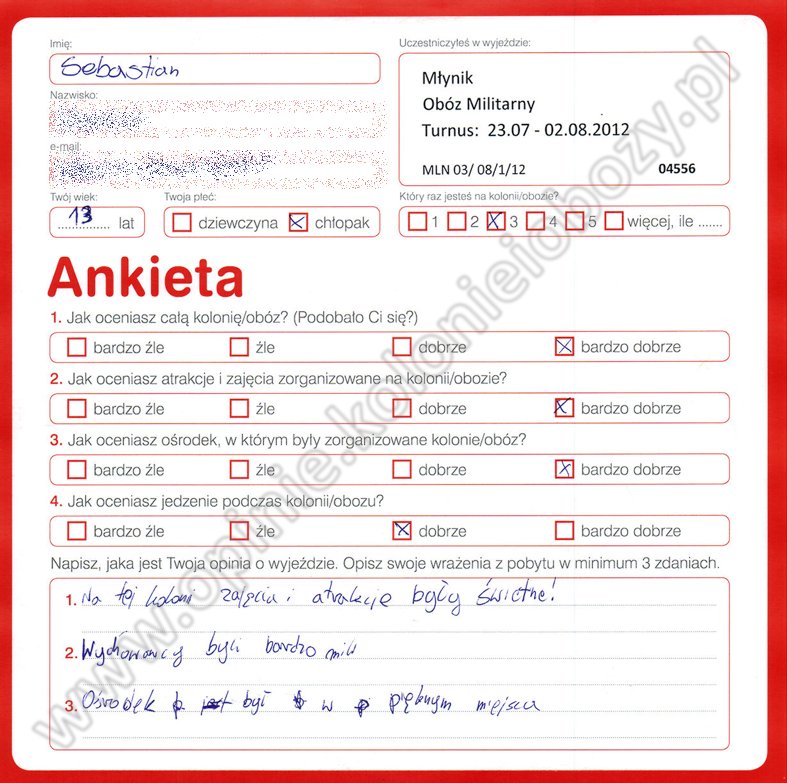 Imię:
Sebastian
Uczestniczyłeś w wyjeździe:
Młynik
Obóz Militarny
Turnus: 23.07 - 02.08.2012
MLN 03/ 08/1/12 04556
Nazwisko:
e-mail:
Twój wiek:
13 lat
Twoja płeć:
dziewczyna chłopak
Który raz jesteś na kolonii/obozie?
1 2 3 4 5 więcej, ile .......
Ankieta
1. Jak oceniasz całą kolonię/obóz? (Podobało Ci się?)
bardzo źle źle dobrze bardzo dobrze
2. Jak oceniasz atrakcje i zajęcia zorganizowane na kolonii/obozie?
bardzo źle źle dobrze bardzo dobrze
3. Jak oceniasz ośrodek, w którym byly zorganizowane kolonie/obóz?
bardzo źle źle dobrze bardzo dobrze
4. Jak oceniasz jedzenie podczas kolonii/obozu?
bardzo źle źle dobrze bardzo dobrze
Napisz, jaka jest Twoja opinia o wyjeździe. Opisz swoje wrażenia z pobytu w minimum 3 zdaniach.
1. Na tej koloni zajęcia i atrakcje były świetne!
2. Wychowawcy byli bardzo mili
3. Ośrodek był w pięknym miejscu
www.opinie.kolonieiobozy.pl